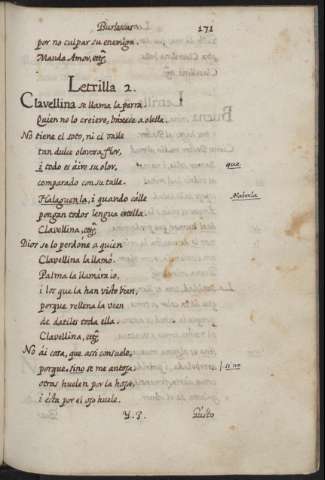 Burlescas 171
por no culpar su enemiga.
Manda Amor, etc.
Letrilla 2.
Clavellina se llama la perra
Quien no lo creiere, baxese a olella.
No tiene el soto, ni el valle
tan dulce olorosa flor,
i todo es aire su olor, que
comparado con su talle.
Halaguenla, i quando calle Halaela
pongan todos lengua en ella
Clavellina, etc.
Dios se lo perdone a quien
Clavellina la llamó.
Palma la llamára io,
i los que la han visto bien,
porque rellena la veen
de datiles toda ella.
Clavellina, etc.
No ái cosa, que assi consuele,
porque, sino se me antoja, si no
otras huelen por la hoja,
i esta por el ojo huele.
Y. 3. Gusto